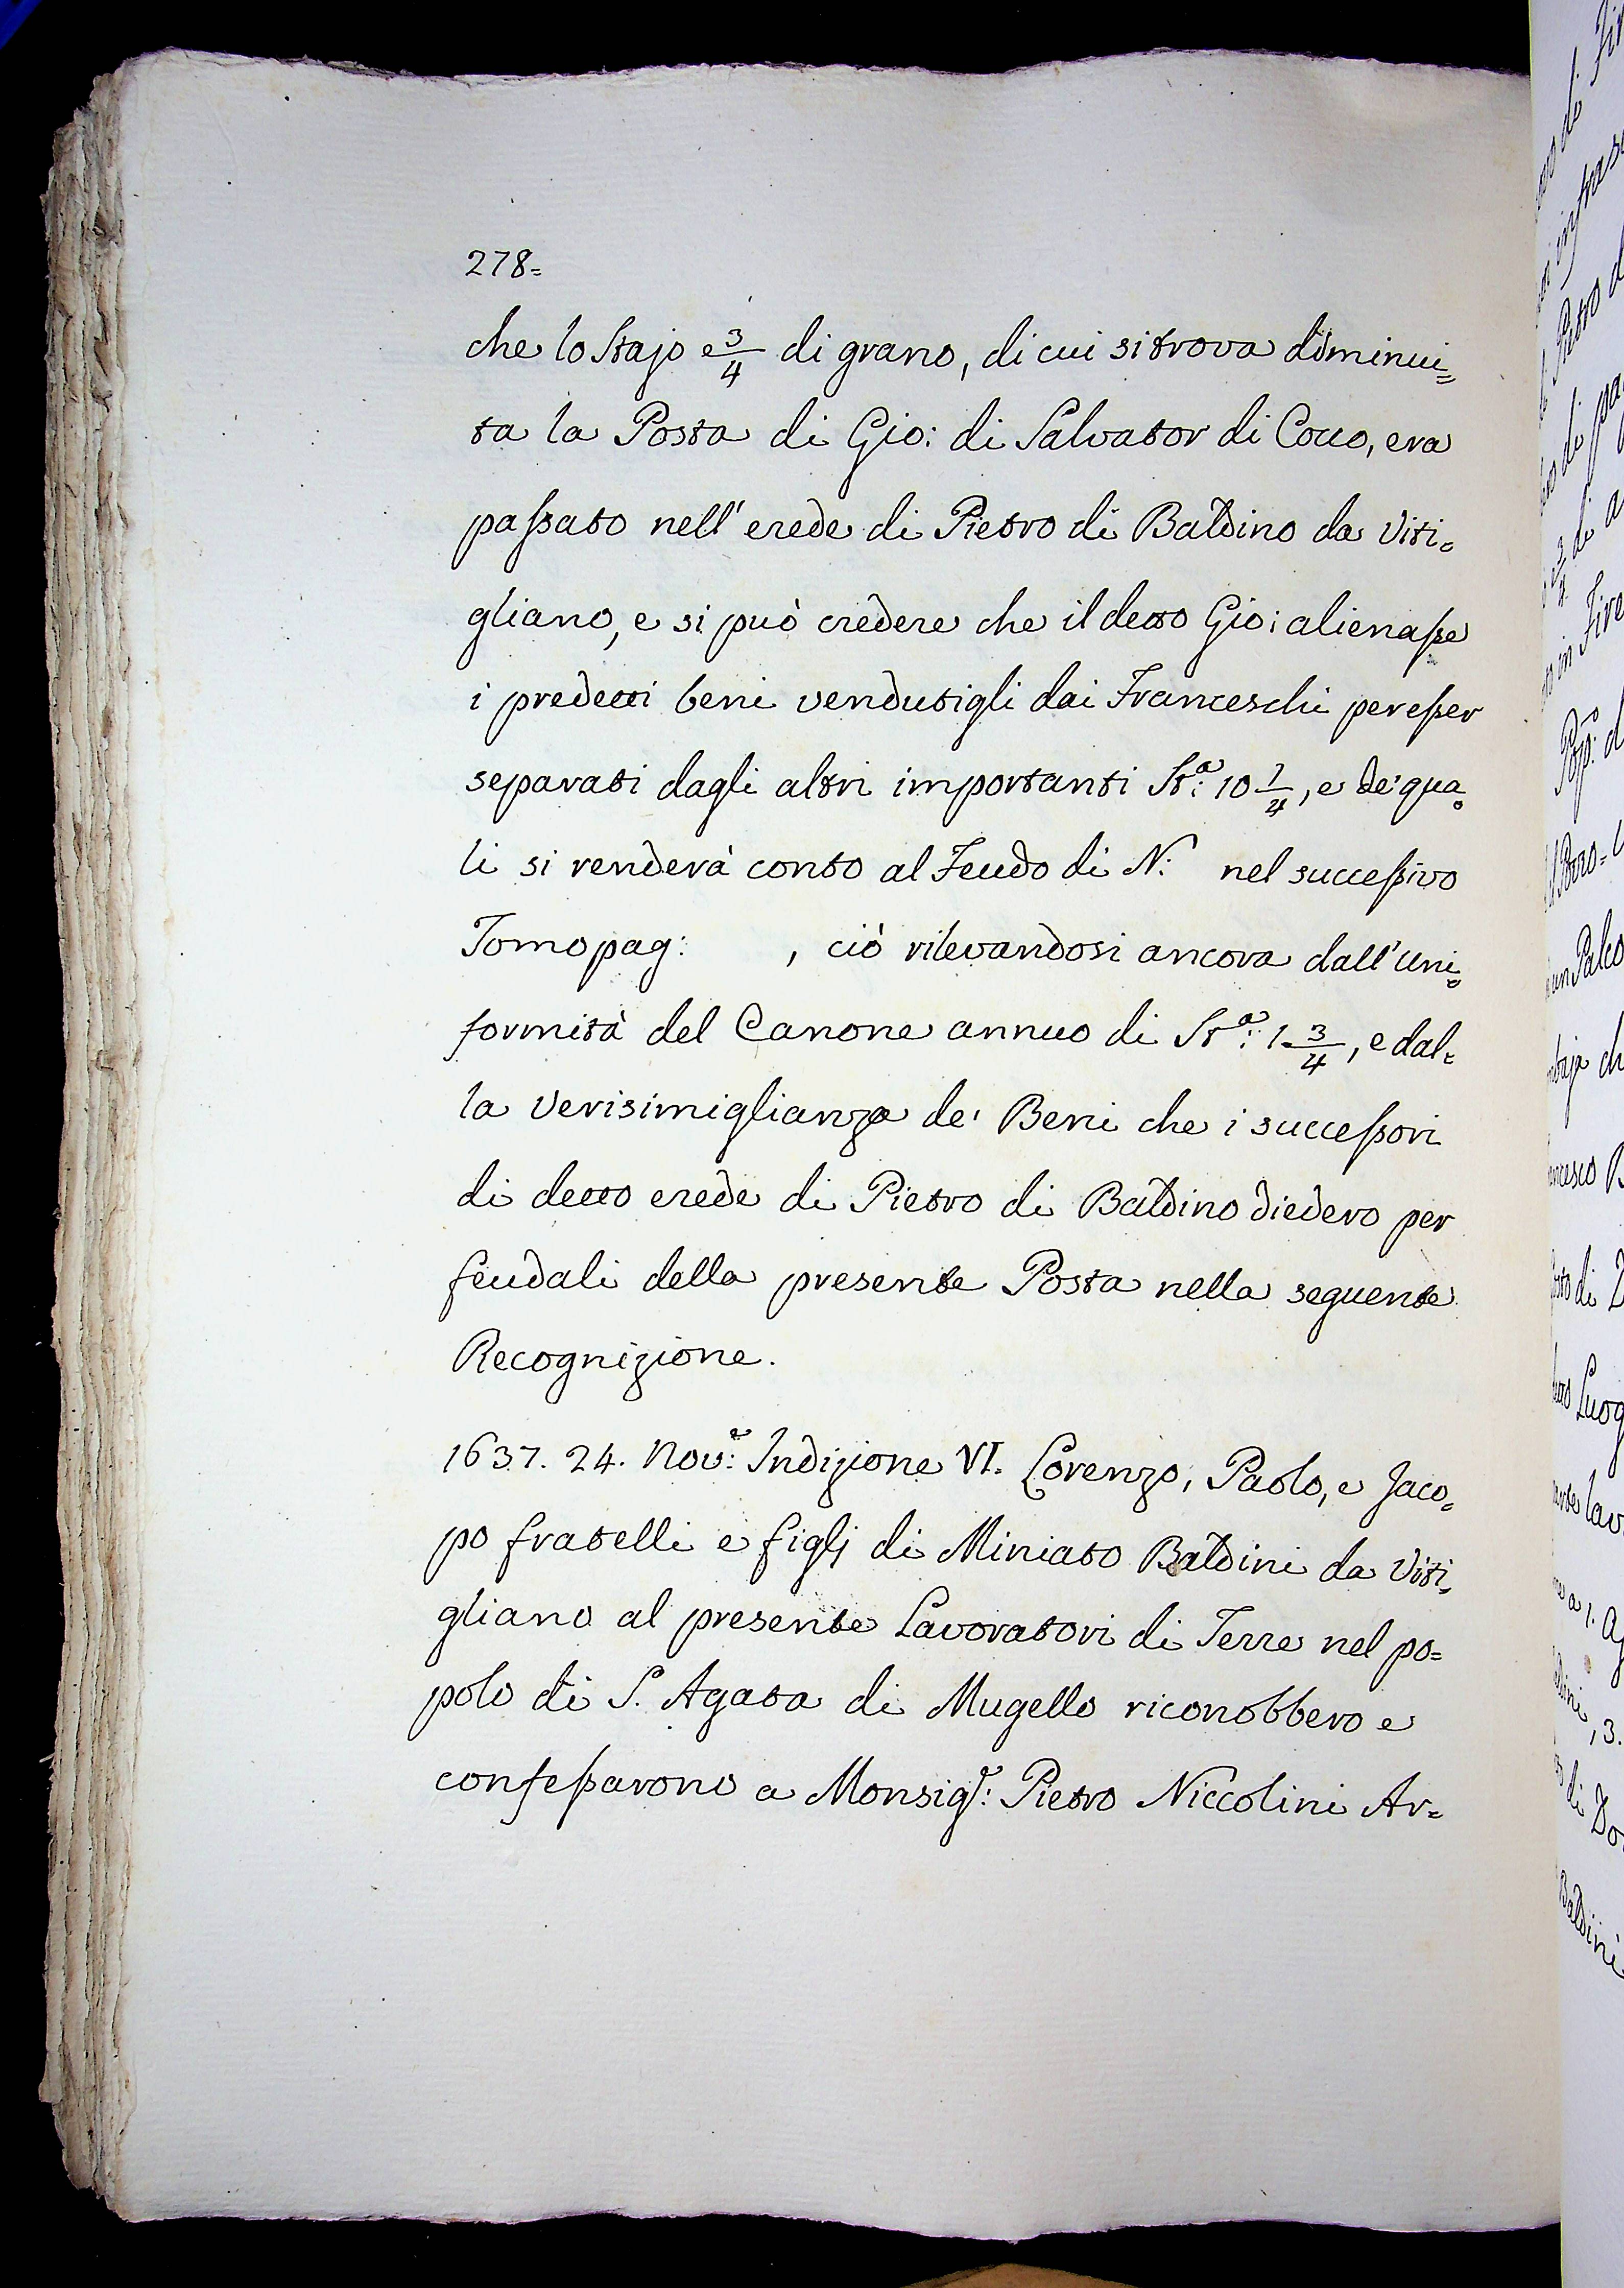 278=
che lo Stajo e 3/4 di grano, di cui si trova diminui=
ta la Posta di Gio: di Salvator di Cocco, era
passato nell'erede di Pietro di Baldino da Viti=
gliano, e si può credere che il detto Gio: alienasse
i predetti beni vendutigli dai Franceschi per esser
separati dagli altri importanti Sta: 10 1/4, e de' qua=
li si renderà conto al Feudo di N: nel successivo
Tomo pag: , ciò rilevandosi ancora dall'uni=
formità del Canone annuo di Sta: 1 3/4, e dal=
la Verisimiglianza de' Beni che i successori
di detto erede di Pietro di Baldino diedero per
feudali della presente Posta nella seguente
Recognizione.
1637. 24. Nove: Indizione VI. Lorenzo, Paolo, e Jaco=
po fratelli e figlj di Miniato Baldini da Viti=
gliano al presente Lavoratori di Terre nel po=
polo di S. Agata di Mugello riconobbero e
confessarono a Monsigr: Pietro Niccolini Ar=